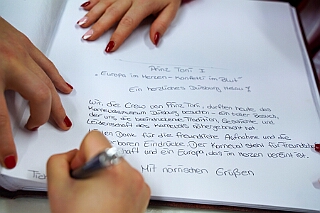 Prinz Toni I
"Europa im Herzen - Konfetti im Blut"
Ein herzliches Duisburg Helau!
Wir, die Crew von Prinz Toni, durften heute das
Karnevalsmuseum Duisburg besuchen - ein toller Besuch,
der uns die beeindruckende Tradition, Geschichte und
Leidenschaft des Karnevals nähergebracht hat.
Vielen Dank für die freundliche Aufnahme und die
baren Eindrücke. Der Karneval steht für Freundschaft
schaft und ein Europa, das im Herzen vereint ist.
Mit närrischen Grüßen